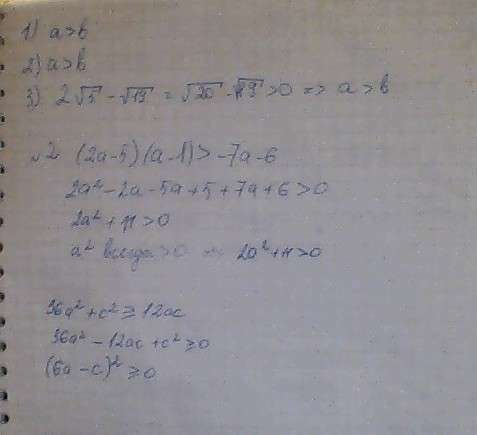 1) a>b
2) a>b
3) 2√5 - √19 = √20 - √19 >0 => a>b
№2 (2a-5)(a-1)>-7a-6
2a²-2a-5a+5+7a+6>0
2a²+11>0
a² всегда >0 => 2a²+11>0
36a²+c²≥12ac
36a²-12ac+c²≥0
(6a-c)²≥0